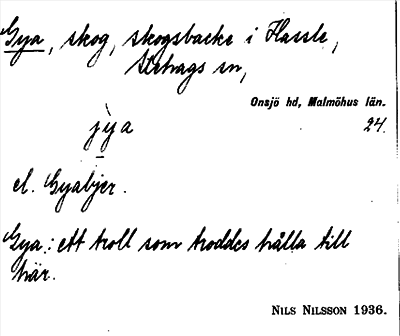 Gya, skog, skogsbacke i Hassle,
Strehags sn,
Onsjö hd, Malmöhus län.
jya 24.
el. Gyabjer.
Gya: ett troll som troddes hålla till
här.
NILS NILSSON 1936.